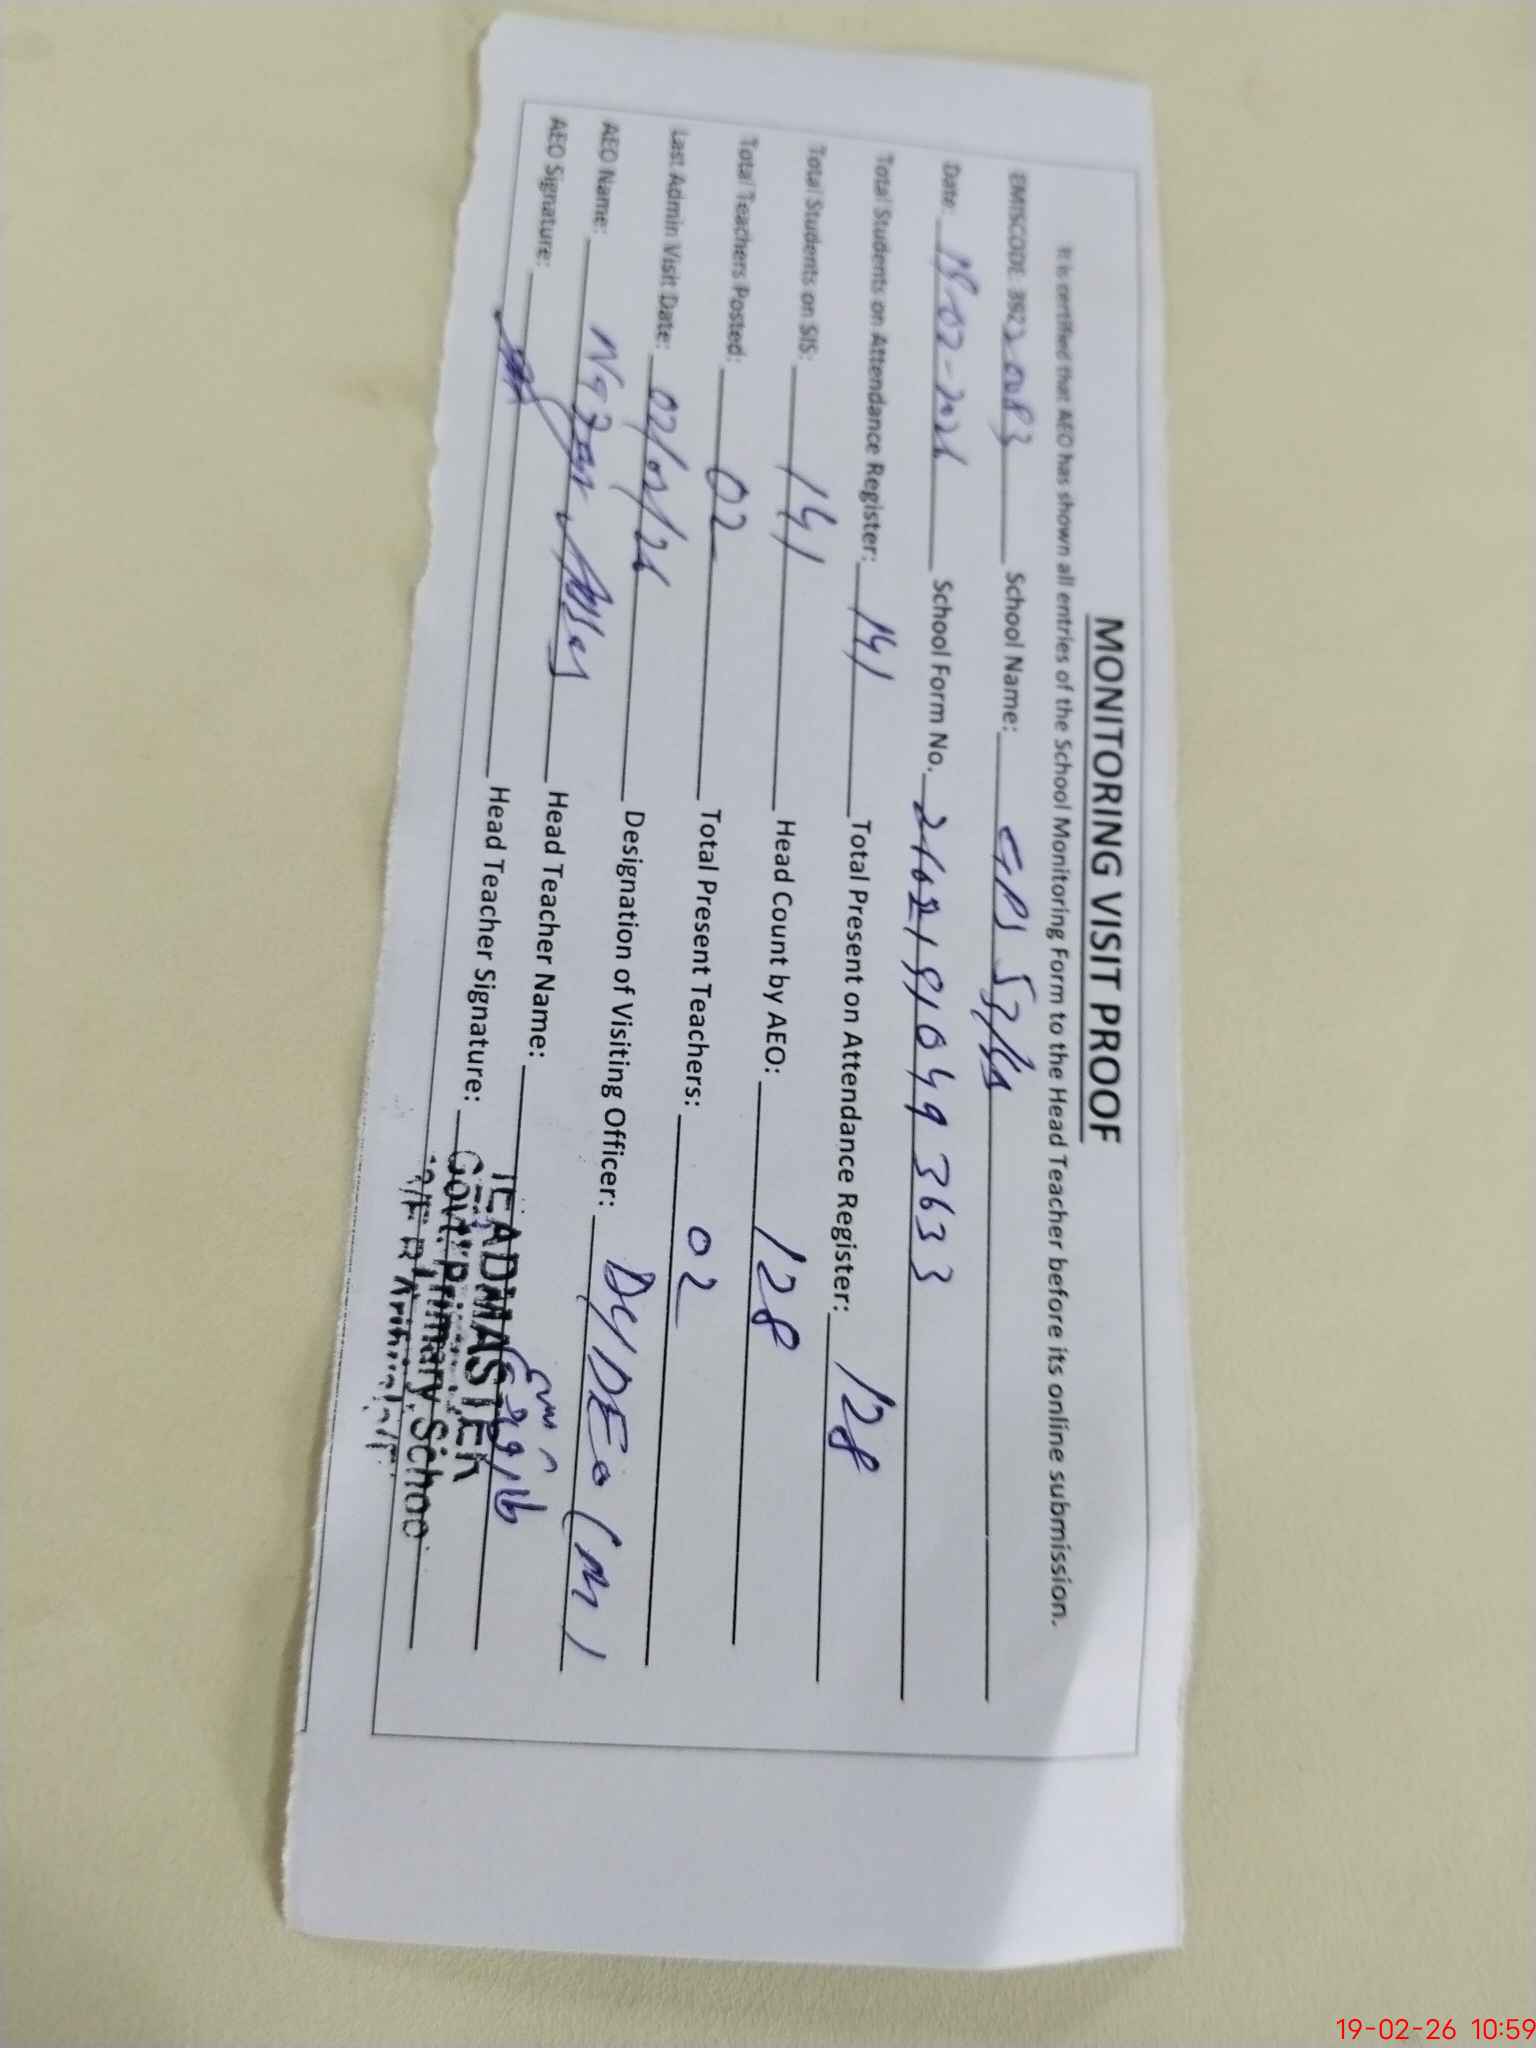 MONITORING VISIT PROOF
It is certified that AEO has shown all entries of the School Monitoring Form to the Head Teacher before its online submission.
EMISCODE 3922 School Name: GPS
Date: -02-2026 School Form No.
Total Students on Attendance Register: 141 Total Present on Attendance Register: 128
Total Students on SIS: 141 Head Count by AEO: 128
Total Teachers Posted: 02 Total Present Teachers: 02
Last Admin Visit Date: 02/02/26 Designation of Visiting Officer: Dy/DEO (M)
AEO Name: Head Teacher Name:
AEO Signature: Head Teacher Signature:
HEADMASTER
Govt. Primary School
19-02-26 10:59